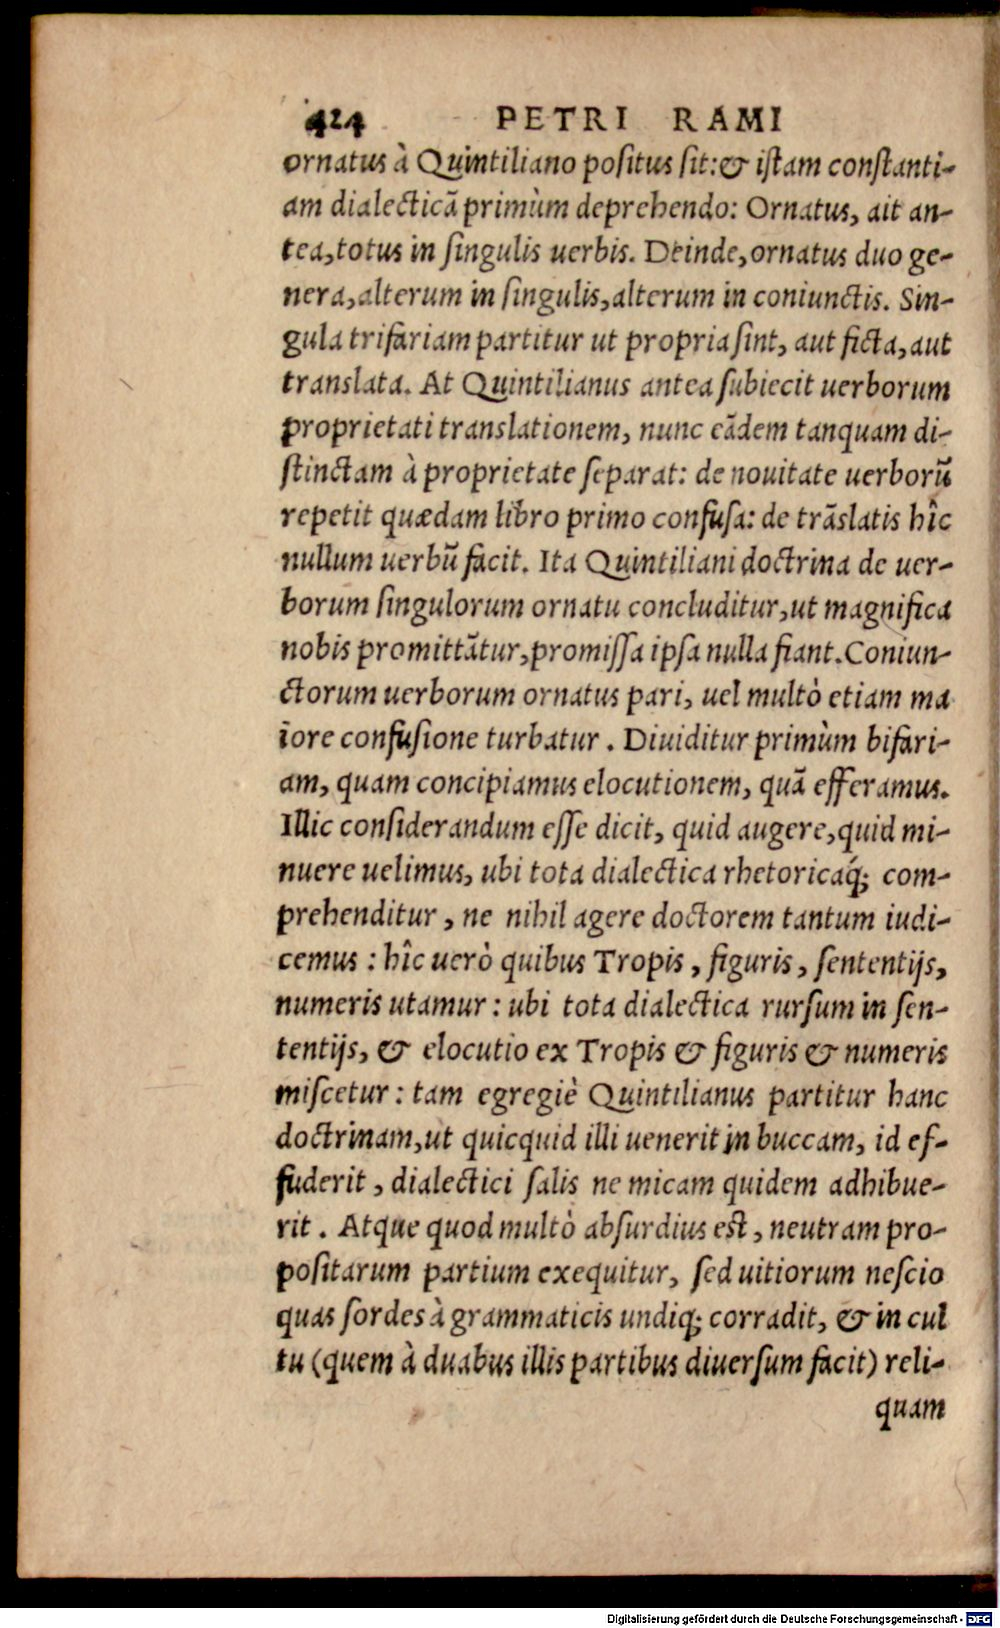 424 PETRI RAMI
ornatus à Quintiliano positus sit:& istam constanti-
am dialecticā primùm deprehendo: Ornatus, ait an-
tea,totus in singulis uerbis. Deinde,ornatus duo ge-
nera,alterum in singulis,alterum in coniunctis. Sin-
gula trifariam partitur ut propria sint, aut ficta,aut
translata. At Quintilianus antea subiecit uerborum
proprietati translationem, nunc eādem tanquam di-
stinctam à proprietate separat: de nouitate uerborū
repetit quædam libro primo confusa: de trāslatis hîc
nullum uerbū facit. Ita Quintiliani doctrina de uer-
borum singulorum ornatu concluditur,ut magnifica
nobis promittātur,promissa ipsa nulla fiant.Coniun-
ctorum uerborum ornatus pari, uel multò etiam ma
iore confusione turbatur. Diuiditur primùm bifari-
am, quam concipiamus elocutionem, quā efferamus.
Illic considerandum esse dicit, quid augere,quid mi-
nuere uelimus, ubi tota dialectica rhetoricaq́; com-
prehenditur, ne nihil agere doctorem tantum iudi-
cemus: hîc uerò quibus Tropis, figuris, sententijs,
numeris utamur: ubi tota dialectica rursum in sen-
tentijs, & elocutio ex Tropis & figuris & numeris
miscetur: tam egregiè Quintilianus partitur hanc
doctrinam,ut quicquid illi uenerit in buccam, id ef-
fuderit, dialectici salis ne micam quidem adhibue-
rit. Atque quod multò absurdius est, neutram pro-
positarum partium exequitur, sed uitiorum nescio
quas sordes à grammaticis undiq; corradit, & in cul
tu (quem à duabus illis partibus diuersum facit) reli-
quam
Digitalisierung gefördert durch die Deutsche Forschungsgemeinschaft - DFG